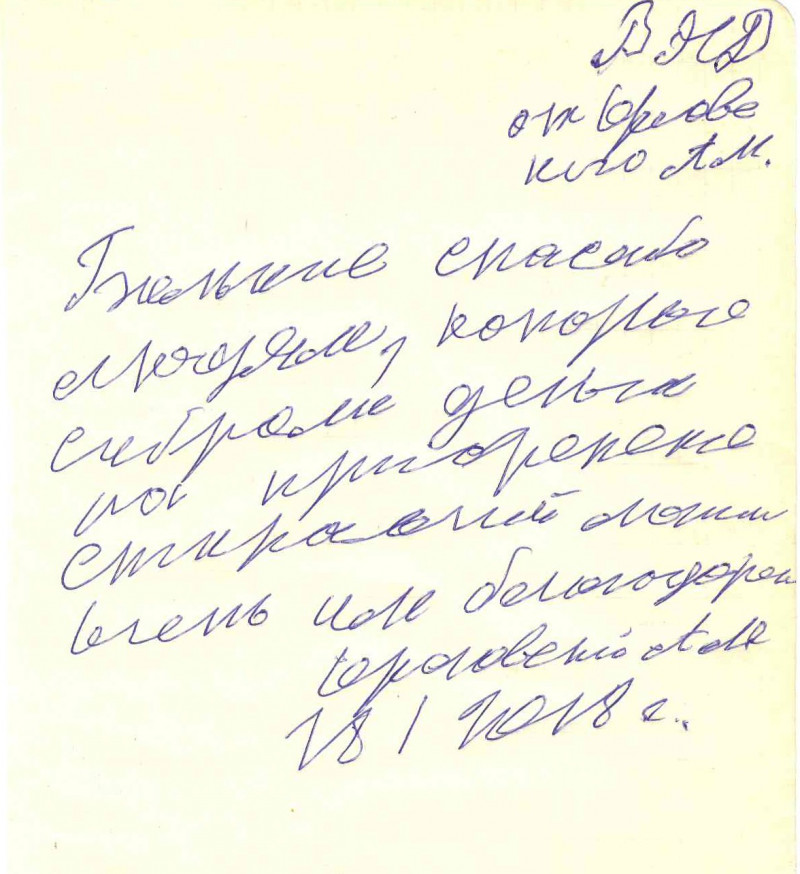 В НД
от Орловс
кого А.М.
Большие спасибо
людям, которые
собрали деньги
на приобретение
стиральной маши
очень им благодарен
Орловский А.М.
18 1 2018 г.